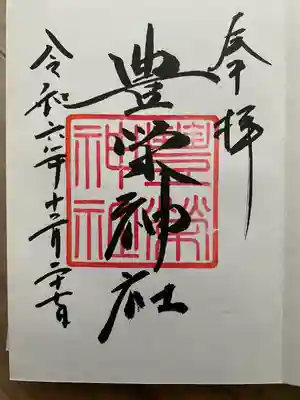 奉拝
豊栄神社
豊榮神社
令和六年十二月二十七日